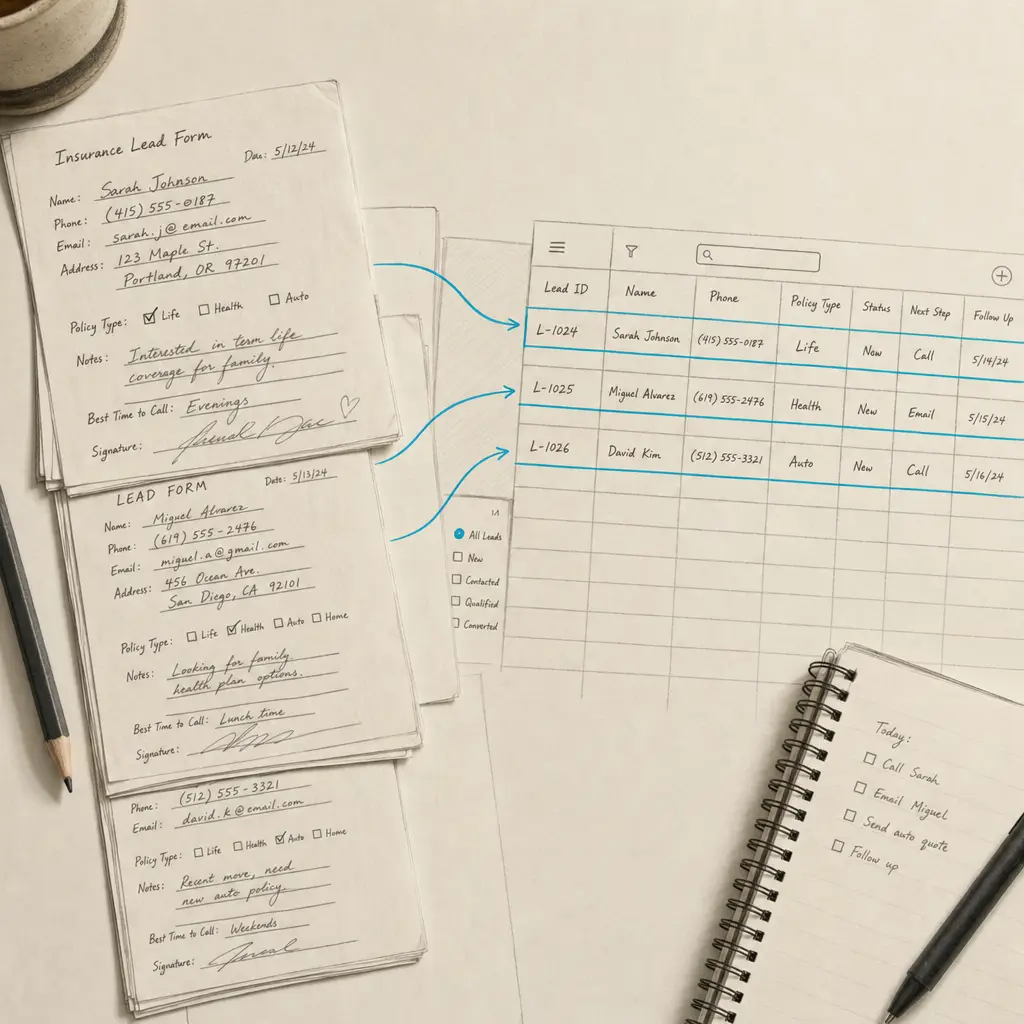 Insurance Lead Form
Date: 5/12/24
Name: Sarah Johnson
Phone: (415) 555-0187
Email: sarah.j@email.com
Address: 123 Maple St.
Portland, OR 97201
Policy Type: Life Health Auto
Notes: Interested in term life
coverage for family.
Best Time to Call: Evenings
Signature:
LEAD FORM
Date: 5/13/24
Name: Miguel Alvarez
Phone: (619) 555-2476
Email: miguel.a@gmail.com
Address: 456 Ocean Ave.
San Diego, CA 92101
Policy Type: Life Health Auto Home
Notes: Looking for family
health plan options.
Best Time to Call: Lunch time
Signature:
Phone: (512) 555-3321
Email: david.k@email.com
Policy Type: Life Health Auto Home
Notes: Recent move, need
new auto policy.
Best Time to Call: Weekends
Signature:
Lead ID Name Phone Policy Type Status Next Step Follow Up
L-1024 Sarah Johnson (415) 555-0187 Life New Call 5/14/24
L-1025 Miguel Alvarez (619) 555-2476 Health New Email 5/15/24
L-1026 David Kim (512) 555-3321 Auto New Call 5/16/24
All Leads
New
Contacted
Qualified
Converted
Today:
Call Sarah
Email Miguel
Send auto quote
Follow up